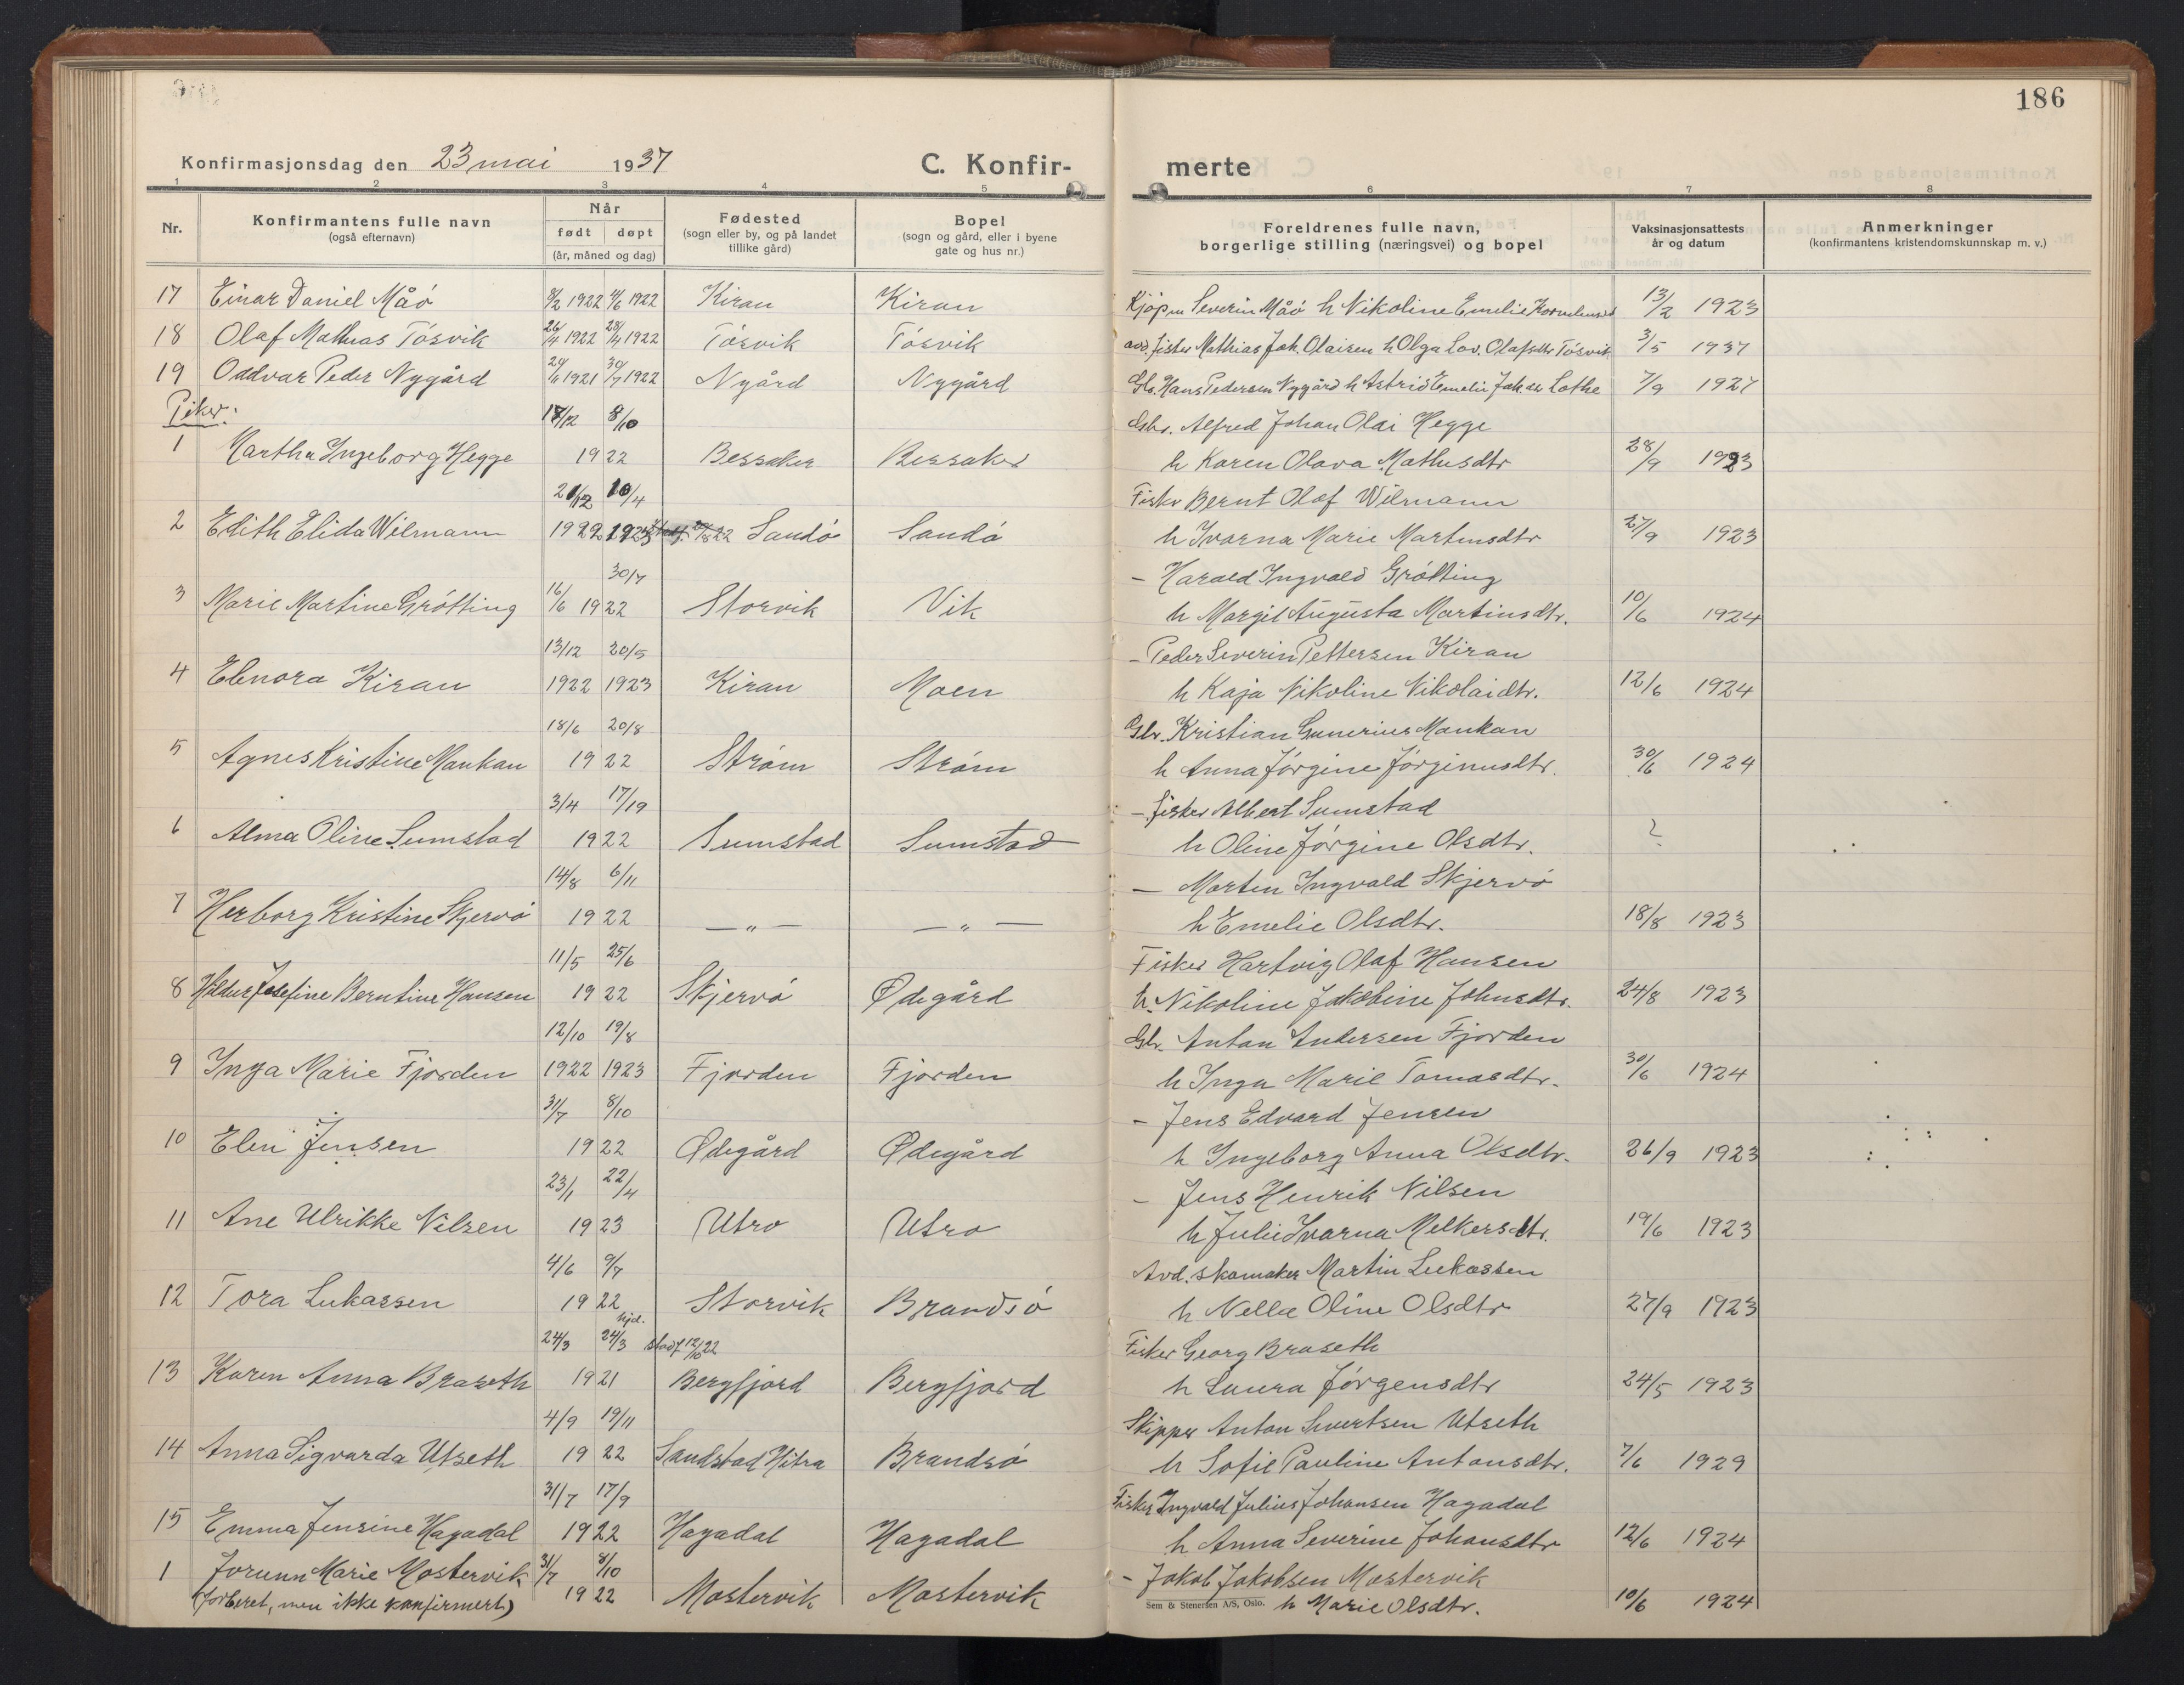 186
Konfirmasjonsdag den 23 mai 1937
C. Konfir-
merte
1 2 3 4 5 6 7 8
Nr.
Konfirmantens fulle navn
(også efternavn)
Når
født døpt
(år, måned og dag)
Fødested
(sogn eller by, og på landet
tillike gård)
Bopel
(sogn og gård, eller i byene
gate og hus nr.)
Foreldrenes fulle navn,
borgerlige stilling (næringsvei) og bopel
Vaksinasjonsattests
år og datum
Anmerkninger
(konfirmantens kristendomskunnskap m. v.)
17 Einar Daniel Måö 8/2 1922 4/6 1922 Kiran Kiran Kjöpm Severin Måö h Nikoline Emelie 13/2 1923
18 Olaf Mathias Tösvik 26/4 1922 28/4 1922 Tösvik Tösvik avd. fisker Mathias Joh. Olaisen h Olga Lov. Olafsdtr Tösvik 3/5 1937
19 Oddvar Peder Nygård 24/11 1921 30/7 1922 Nygård Nygård Gbr. Hans Pedersen Nygård h Astrid Emelie Joh.dtr Lothe 7/9 1927
Piker:
18/12 8/10 Gbr. Alfred Johan Olai Hegge
1 Martha Ingeborg Hegge 1922 Bessaker Bessaker h Karen Olava Mathusdtr 28/9 1923
21/12 10/4 Fisker Bernt Olaf Wilmann
2 Edith Elida Wilmann 1922 1923 Sandö Sandö h Ivarna Marie Martinsdtr 27/9 1923
30/7 – Harald Ingvald Grötting
3 Marie Martine Grötting 16/6 1922 Storvik Vik h Margit Augusta Martinsdtr. 10/6 1924
13/12 20/5 – Peder Severin Pettersen Kiran
4 Elenora Kiran 1922 1923 Kiran Moen h Kaja Nikoline Nikolaidtr. 12/6 1924
18/6 20/8 Gbr. Kristian Gunerius Mankan
5 Agnes Kristine Mankan 1922 Ström Ström h Anna Jörgine Jörginusdtr. 30/6 1924
3/4 17/19 – fisker Albert Sumstad
6 Alma Oline Sumstad 1922 Sumstad Sumstad h Oline Jörgine Olsdtr. ?
14/8 6/11 – Martin Ingvald Skjervö
7 Herborg Kristine Skjervö 1922 — " — — " — h Emelie Olsdtr. 18/8 1923
11/5 25/6 Fisker Hartvig Olaf Hansen
8 Hildur Josefine Berntine Hansen 1922 Skjervö Ødegård h. Nikoline Jakobine Johnsdtr. 24/8 1923
12/10 19/8 Gbr. Anton Andersen Fjorden
9 Inga Marie Fjorden 1922 1923 Fjorden Fjorden h Inga Marie Tomasdtr. 30/6 1924
31/7 8/10 – Jens Edvard Jensen
10 Elen Jensen 1922 Ødegård Ødegård h Ingeborg Anna Olsdtr. 26/9 1923
23/1 22/4 – Jens Henrik Nilsen
11 Ane Ulrikke Nilsen 1923 Utro Utro h Julie Ivarna Melkersdtr. 19/6 1923
4/6 9/7 Avd. skomaker Martin Lukassen
12 Tora Lukassen 1922 Storvik Brandsö h Nella Oline Olsdtr 27/9 1923
24/3 hjd. 24/3 stadf 12/10 22 Fisker Georg Braseth
13 Karen Anna Braseth 1921 Bergfjord Bergfjord h Laura Jörgensdtr 24/5 1923
4/9 19/11 Skipper Anton Sivertsen Utseth
14 Anna Sigvarda Utseth 1922 Sandstad Hitra Brandsö h Sofie Pauline Antonsdtr. 7/6 1929
31/7 17/9 Fisker Ingvald Julius Johansen Hagadal
15 Emma Jensine Hagadal 1922 Hagadal Hagadal h Anna Severine Johansdtr 12/6 1924
1 Jorunn Marie Mostervik 31/7 8/10 – Jakob Jakobsen Mostervik
(forberet, men ikke konfirmert) 1922 Mostervik Mostervik h Marie Olsdtr. 10/6 1924
Sem & Stenersen A/S, Oslo.